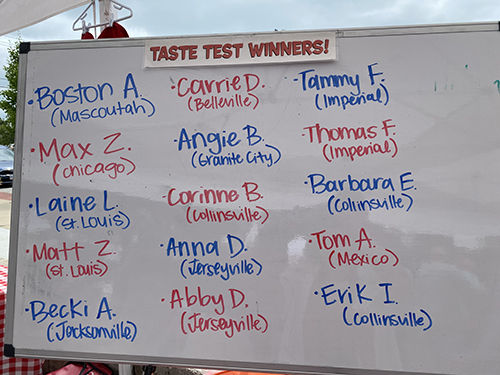 TASTE TEST WINNERS!
• Boston A.
(Mascoutah)
• Max Z.
(Chicago)
• Laine L.
(St. Louis)
• Matt Z.
(St. Louis)
• Becki A.
(Jacksonville)
• Carrie D.
(Belleville)
• Angie B.
(Granite City)
• Corinne B.
(Collinsville)
• Anna D.
(Jerseyville)
• Abby D.
(Jerseyville)
• Tammy F.
(Imperial)
• Thomas F.
(Imperial)
• Barbara E.
(Collinsville)
• Tom A.
(Mexico)
• Erik I.
(Collinsville)